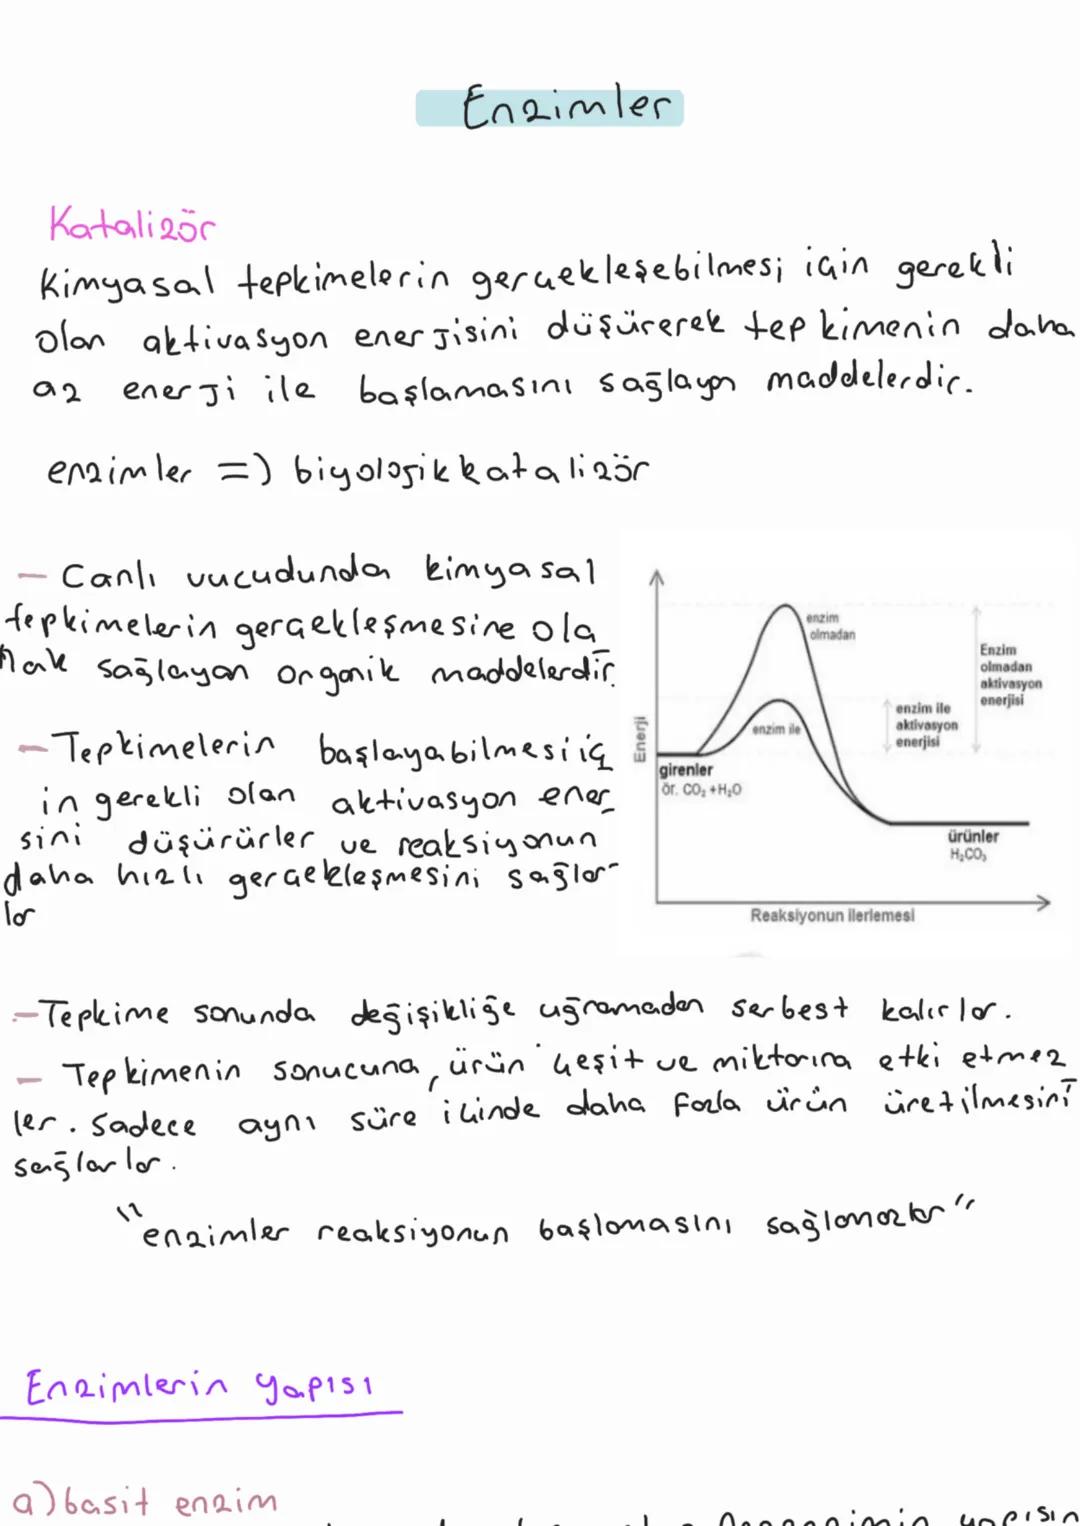 Enzimler
Katalizör
Kimyasal tepkimelerin gerçekleşebilmesi için gerekli
olan aktivasyon enerjisini düşürerek tepkimenin daha
az enerji ile başlamasını sağlayan maddelerdir.
enzimler =) biyolojik katalizör
- Canlı vucudunda kimyasal
tepkimelerin gerçekleşmesine ola
nak sağlayan organik maddelerdir.
- Tepkimelerin başlayabilmesi iç
in gerekli olan aktivasyon ener
sini düşürürler ve reaksiyonun
daha hızlı gerçekleşmesini sağlar-
lar
enzim
olmadan
Enzim
olmadan
aktivasyon
enerjisi
enzim ile
aktivasyon
enerjisi
enzim ile
Enerji
girenler
ör. CO₂ +H₂O
ürünler
H₂CO₃
Reaksiyonun ilerlemesi
- Tepkime sonunda değişikliğe uğramadan serbest kalırlar.
- Tepkimenin sonucuna, ürün çeşit ve miktarına etki etmez
ler. Sadece aynı süre içinde daha fazla ürün üretilmesini
sağlarlar.
"enzimler reaksiyonun başlamasını sağlamazlar"
Enzimlerin yapısı
a) basit enzim